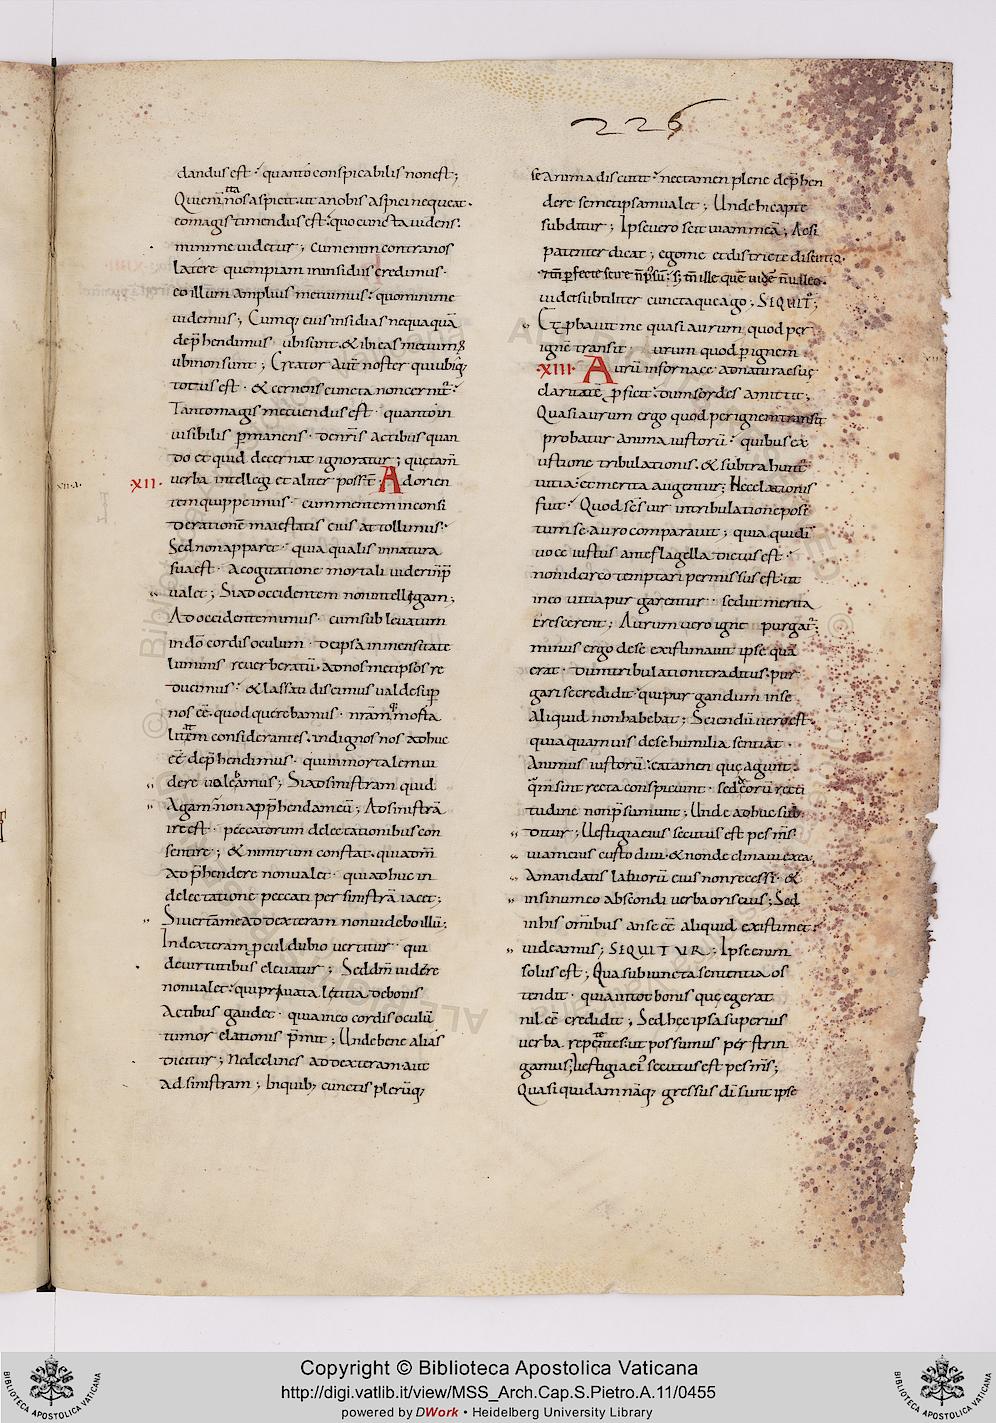 226
dandus est · quanto conspicabilis non est;
Quiem̄ ita nos aspicit · ut a nobis aspici nequeat ·
eo magis timendus est · quo cuncta videns ·
minime videtur ; Cum enim contra nos
latere quempiam in insidiis credimus ·
eo illum amplius metuimus · quo minime
videmus ; Cumq; eius insidias nequaquā
dep̄hendimus ubi sunt · & ibi eas metuim9
ubi non sunt ; Creator aut̄ noster qui ubiq;
totus est · & cernens cuncta non cernit̄ ·
Tanto magis metuendus est · quanto in
visibilis p̄manens · de nr̄is actibus quan
do et quid decernat ignoratur ; quę tam̄
XII· verba intellegi et aliter poss̄t ; Ad orien
tem quippe imus · cum mentem in consi
deratione maiestatis eius attollimus ·
Sed non apparet · quia qualis in natura
sua est · a cogitatione mortali videri n̄p̄
valet ; Si ad occidentem non intellegam ;
Ad occidentem imus · cum sublevatum
in dō cordis oculum · de ipsa inmensitate
luminis reverberatū · ad nosmetipsos re
ducimus · & lassati discimus valde sup̄
nos eē · quod querebamus · nr̄am q; morta
litatem considerantes · indignos nos adhuc
eē dep̄hendimus · qui inmortalem vi
dere valeamus ; Si ad sinistram quid
agam · non app̄hendam eū ; Ad sinistrā
ire est · peccatorum delectationibus con
sentire ; & nimirum constat · quia dm̄
adp̄hendere non valet · qui adhuc in
delectatione peccati per sinistrā iacet ;
Si vertā me ad dexteram non videbo illū ;
In dexteram p̄culdubio vertitur · qui
de virtutibus elevatur ; Sed dm̄ videre
non valet · qui privata lętitia de bonis
actibus gaudet · quia in eo cordis oculū
tumor elationis p̄mit ; Unde bene alias
dicitur ; Ne declines ad dexteram aut
ad sinistram ; In quib; cunctis plerūq;
se anima discutit · nec tamen plene dep̄hen
dere semetipsam valet ; Unde hic apte
subditur ; Ipse vero scit viam meā ; Ac si
patenter dicat ; ego me et districte discutio ·
& m̄ perfecte scire n̄ possū · s; tam̄ ille quē videre n̄ valeo ·
videt subtiliter cuncta que ago ; SEQUIT̄ ;
Et p̄bavit me quasi aurum quod per
ignē transit ; urum quod p̄ ignem
·XIII· Aurū in fornace ad naturae suę
claritatē p̄ficit · dum sordes amittit ;
Quasi aurum ergo quod per ignem transit
probatur anima iustorū · quibus ex
ustione tribulationis · & subtrahunt̄
vitia · et merita augentur ; Nec elationis
fuit · Quod sc̄s vir in tribulatione posi
tum se auro comparavit ; quia qui di
voce iustus ante flagella dictus est ·
non idcirco temptari permissus est · ut
in eo vitia purgarentur · sed ut merita
crescerent ; Aurum vero igne purgat̄ ;
minus ergo de se existimavit ipse quā
erat · dum tribulationi traditus · pur
gari se credidit · qui purgandum in se
aliquid non habebat ; Sciendū vero est ·
quia quamvis de se humilia sentiat ·
Animus iustorū · ea tamen quę agunt ·
qm̄ sint recta conspiciunt · sed de eorū recti
tudine non p̄sumunt ; Unde adhuc sub
ditur ; Vestigia eius secutus est pes m̄s ·
viam eius custodivi · & non declinavi ex ea ·
A mandatis labiorū eius non recessi · &
in sinu meo abscondi verba oris eius ; Sed
in his omībus an se eē aliquid existimet ·
videamus ; SEQUITUR ; Ipse enim
solus est ; Qua subiuncta sententia os
tendit · quia in tot bonis quę egerat
nil eē credidit ; Sed hęc ipsa superius
verba repetentes · ut possumus perstrin
gamus ; Vestigia ei9 secutus est pes m̄s ;
Quasi quidam nāq; gressus dī sunt ipse
Copyright © Biblioteca Apostolica Vaticana
http://digi.vatlib.it/view/MSS_Arch.Cap.S.Pietro.A.11/0455
powered by DWork • Heidelberg University Library
BIBLIOTECA APOSTOLICA VATICANA
BIBLIOTECA APOSTOLICA VATICANA